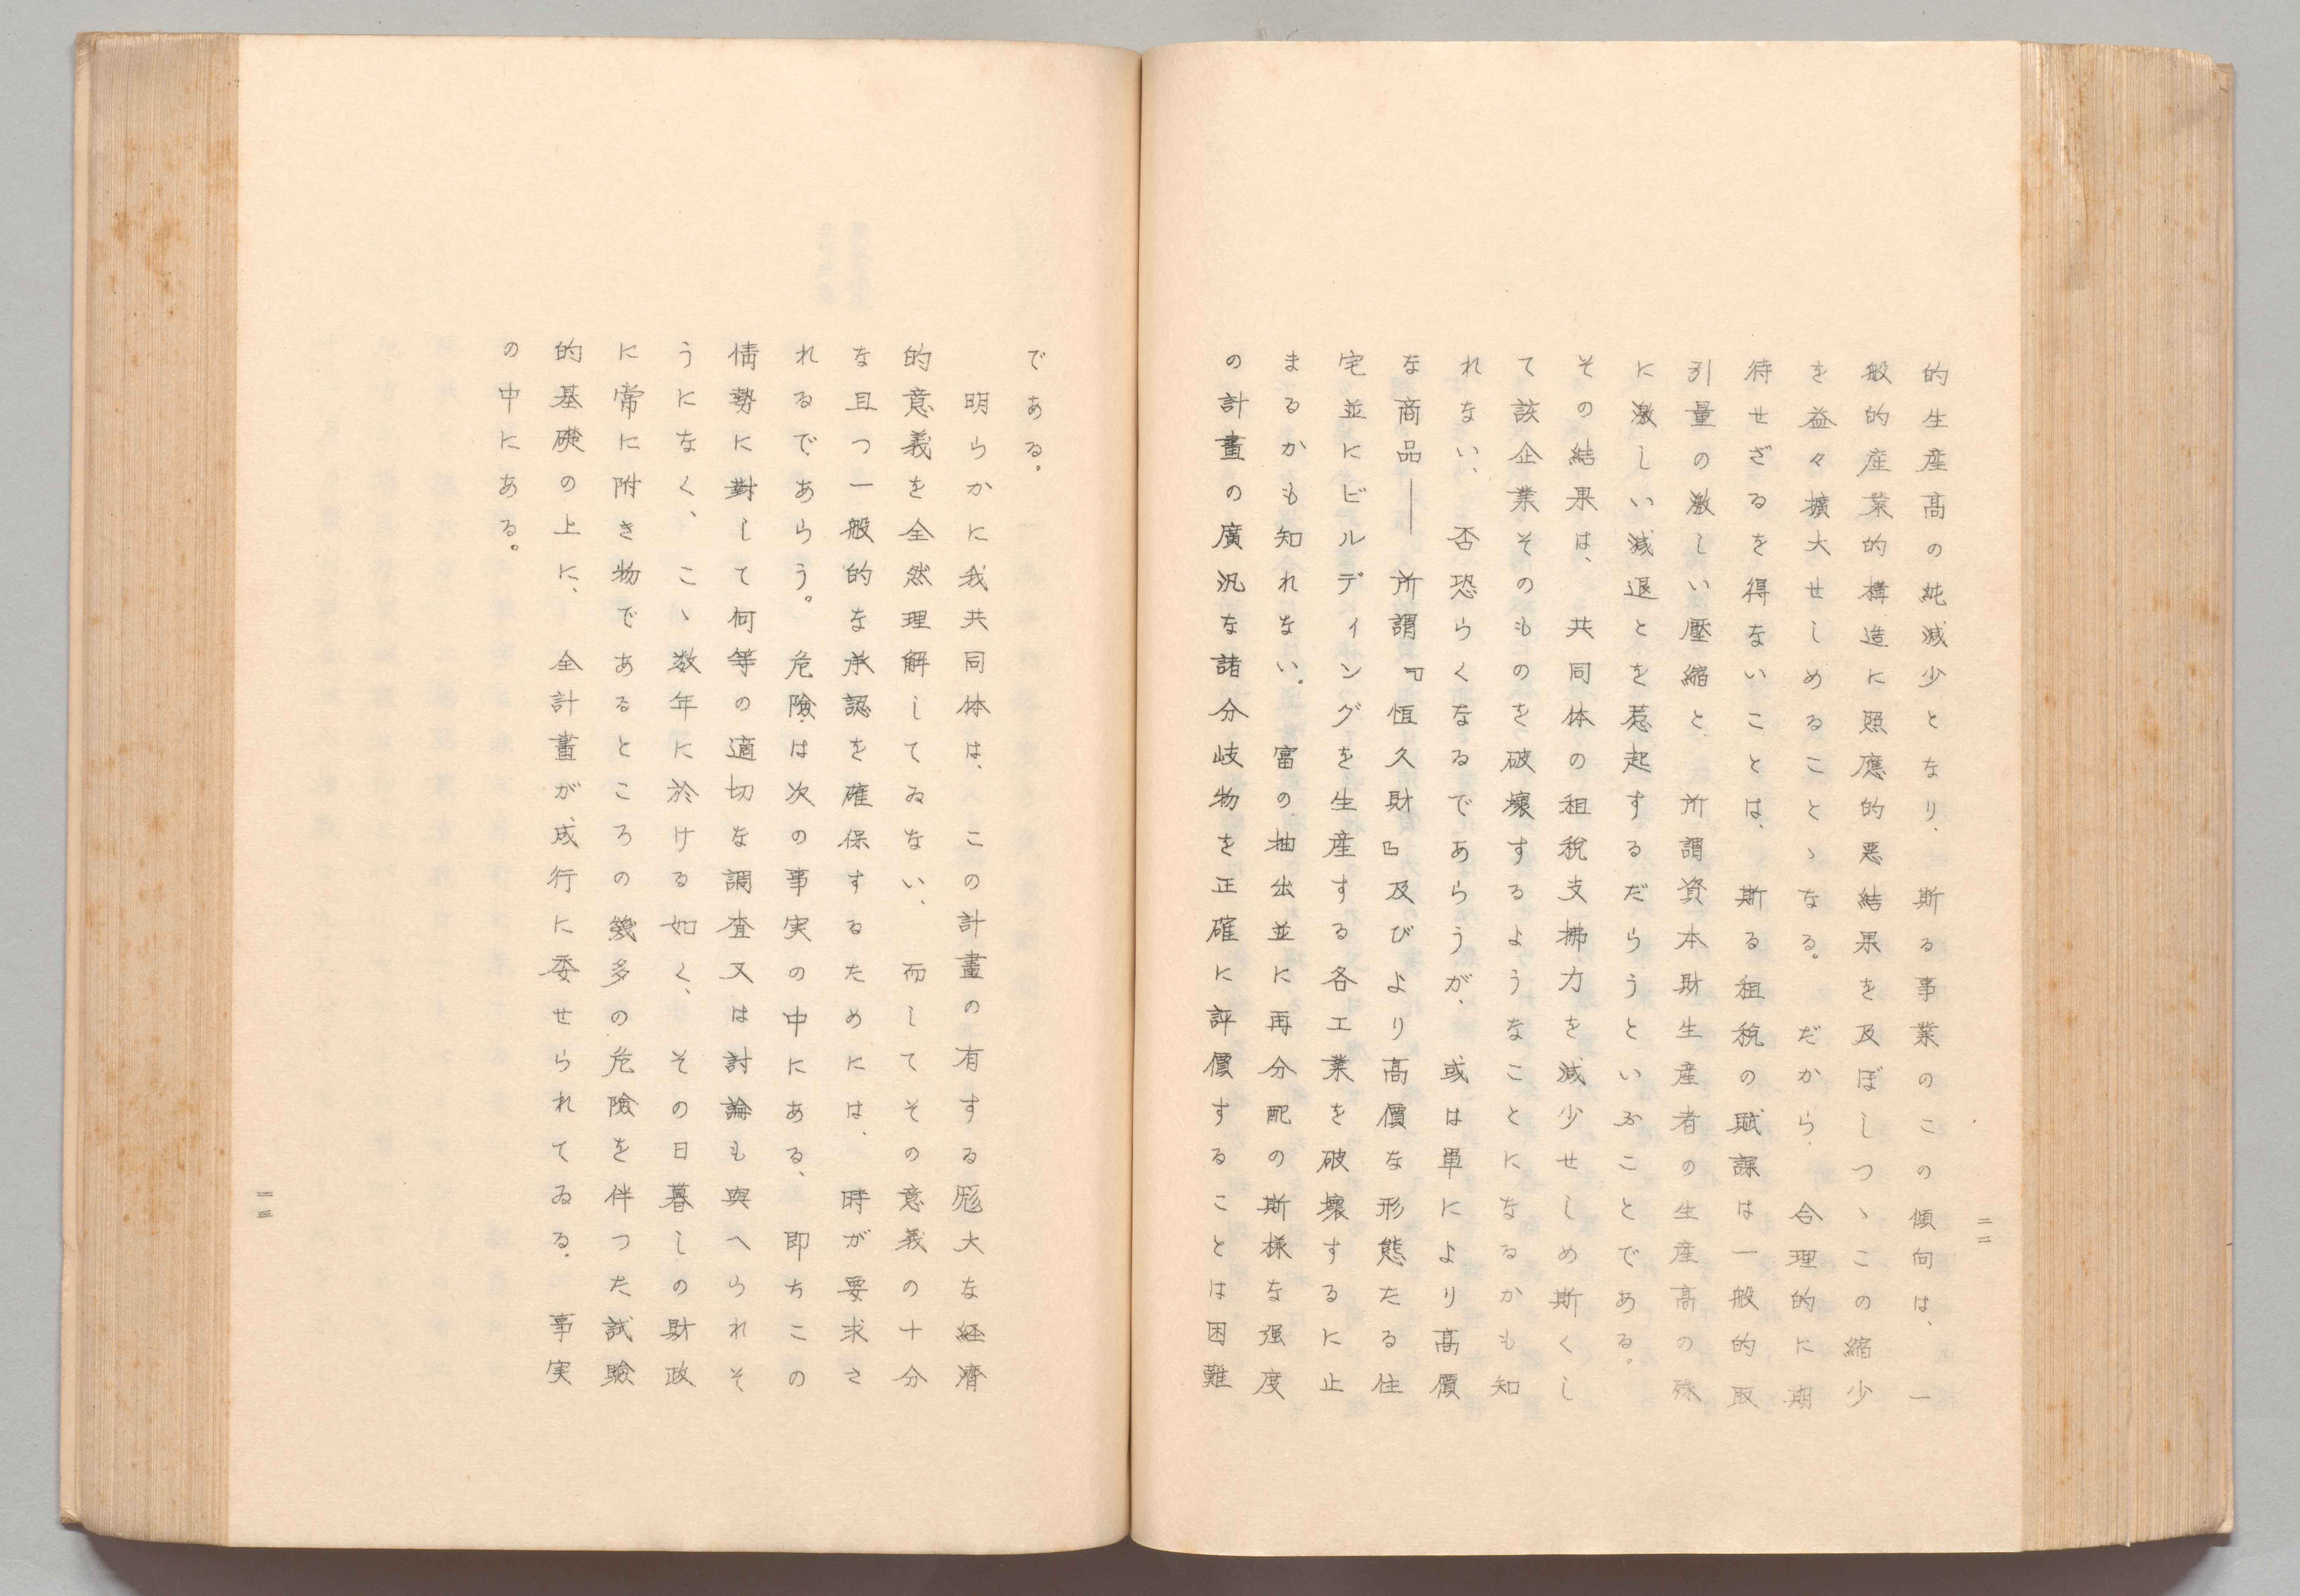 的生産高の純減少となり、斯る事業のこの傾向は、一
般的産業的構造に照應的悪結果を及ぼしつゝこの縮少
を益々擴大せしめることゝなる。だから、合理的に期
待せざるを得ないことは、斯る租税の賦課は一般的取
引量の激しい壓縮と、所謂資本財生産者の生産高の殊
に激しい減退とを惹起するだらうといふことである。
その結果は、共同体の租税支拂力を減少せしめ斯くし
て該企業そのものを破壊するようなことになるかも知
れない、否恐らくなるであらうが、或は單により高價
な商品――所謂『恒久財』及びより高價な形態たる住
宅並にビルディングを生産する各工業を破壊するに止
まるかも知れない。富の抽出並に再分配の斯様な强度
の計畫の廣汎な諸分岐物を正確に評價することは困難
二二
である。
明らかに我共同体は、この計畫の有する厖大な経濟
的意義を全然理解してゐない、而してその意義の十分
な且つ一般的な承認を確保するためには、時が要求さ
れるであらう。危險は次の事実の中にある、即ちこの
情勢に對して何等の適切な調査又は討論も與へられそ
うになく、こゝ数年に於ける如く、その日暮しの財政
に常に附き物であるところの幾多の危險を伴つた試驗
的基礎の上に、全計畫が、成行に委せられてゐる、事実
の中にある。
二三